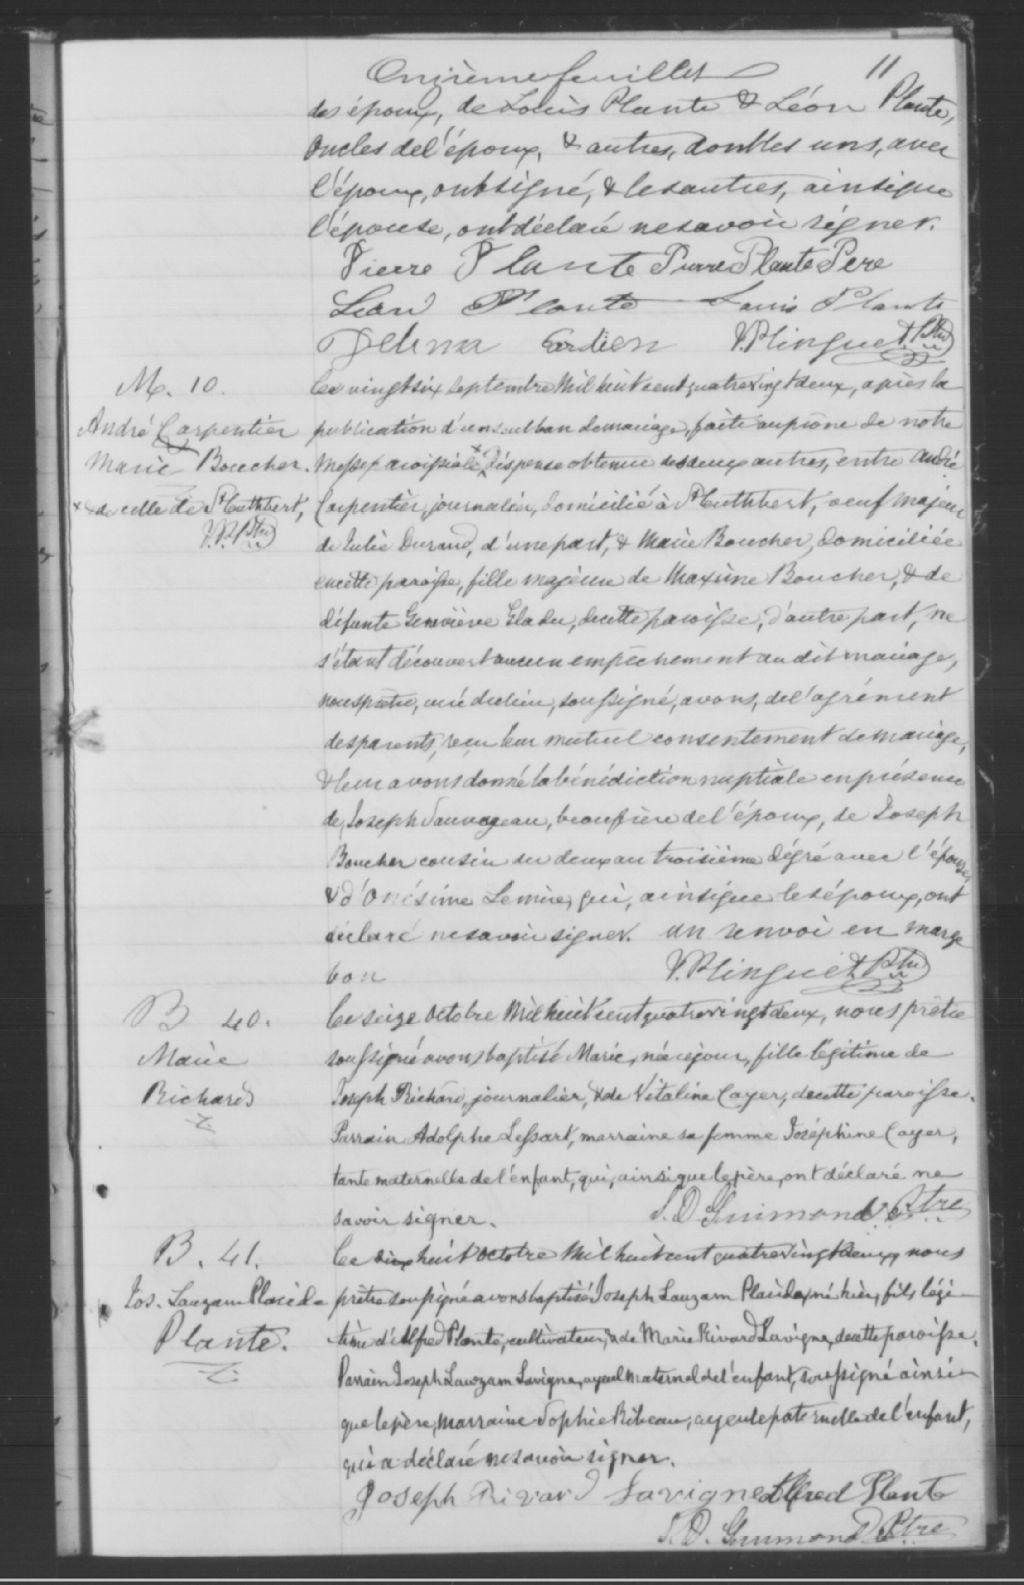 Onzième feuillet 11
des époux, de Louis Plante & Léon Plante,
oncles de l'époux, & autres, dont les uns, avec
l'époux, ont signé, & les autres, ainsi que
l'épouse, ont déclaré ne savoir signer.
Pierre Plante Pierre Plante Pere
Léon Plante Louis Plante
Delima V. Plinguet Ptre
M. 10.
André Carpentier
Marie Boucher.
x & de celle de St Cuthbert,
V.P. Ptre
Le vingt six septembre mil huit cent quatre vingt deux, après la
publication d'un seul ban de mariage, faite au prône de notre
Messe paroissiale x dispense obtenue des deux autres, entre André
Carpentier, journalier, domicilié à St Cuthbert, veuf majeur
de Julie Durand, d'une part, & Marie Boucher, domiciliée
en cette paroisse, fille majeure de Maxime Boucher, & de
défunte Geneviève Gladu, de cette paroisse, d'autre part, ne
s'étant découvert aucun empêchement au dit mariage,
nous prêtre, curé du lieu, soussigné, avons, de l'agrément
des parents, reçu leur mutuel consentement de mariage,
& leur avons donné la bénédiction nuptiale en présence
de Joseph Sauvageau, beaufrère de l'époux, de Joseph
Boucher cousin du deux au troisième dégré avec l'épouse
& d'Onésime Lemire, qui, ainsi que les époux, ont
déclaré ne savoir signer. un renvoi en marge
bon V. Plinguet Ptre
B 40.
Marie
Richard
Le seize octobre mil huit cent quatre vingt deux, nous prêtre
soussigné avons baptisé Marie, née ce jour, fille légitime de
Joseph Richard, journalier, & de Vitaline Cayer, de cette paroisse.
Parrain Adolphe Lessart, marraine sa femme Joséphine Cayer,
tante maternelle de l'enfant, qui, ainsi que le père, ont déclaré ne
savoir signer. J. D. Guimond Ptre
B. 41.
Jos. Lauzam Placide
Plante.
Le dix huit octobre mil huit cent quatre vingt deux, nous
prêtre soussigné avons baptisé Joseph Lauzam Placide, né hier, fils légi-
time d'Alfred Plante, cultivateur, & de Marie Rivard Lavigne, de cette paroisse.
Parrain Joseph Lauzam Lavigne, ayeul maternel de l'enfant, soussigné ainsi
que le père, marraine Sophie Bibeau, ayeule paternelle de l'enfant,
qui a déclaré ne savoir signer.
Joseph Rivard Lavigne Alfred Plante
J. D. Guimond Ptre